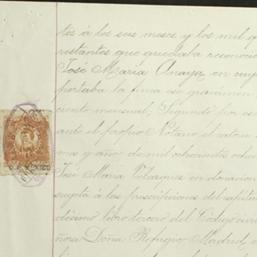 tes á los sus meses y los mil q
restantes que quedaba reconocie
José Maria Anaya, en imp
portaba la finca se gravámen
ciento mensual; Segundo por es
ante el propio Notario el catorce
mes y año de mil ochocientos ochen
José Maria Velazquez en donacion
sugeta á las prescripciones del capitu
décimo libro tercero del Código civi
ñora Doña Refugio Madrid, a